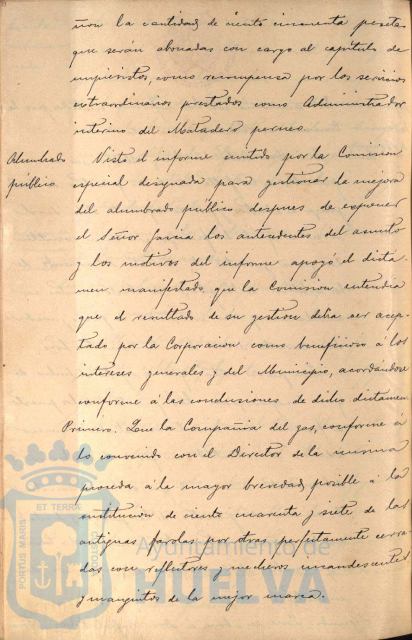 ñon la cantidad de ciento cincuenta pesetas
que serán abonadas con cargo al capítulo de
imprevistos, como recompensa por los servicios
extraordinarios prestados como Administrador
interino del Matadero
Alumbrado
público
Visto el informe emitido por la Comision
especial designada para gestionar la mejora
del alumbrado público despues de exponer
el Señor Garcia los antecedentes del asunto
y los motivos del informe apoyó el dicta-
men, manifestado, que la Comision entendia
que el resultado de su gestion debia ser acep-
tado por la Corporacion como beneficioso á los
intereses generales y del Municipio, acordándose
conforme á las conclusiones de dicho dictamen
Primero. Que la Compañia del gas, conforme á
lo convenido con el Director de la misma
proceda á la mayor brevedad posible á la
sustitucion de ciento cuarenta y siete de las
antiguas farolas por otras perfectamente cerra-
das con reflectores y mecheros incandescentes
y manguitos de la mejor marca.
PORTUS MARIS
ET TERRÆ
CUSTODIA
Ayuntamiento de
HUELVA